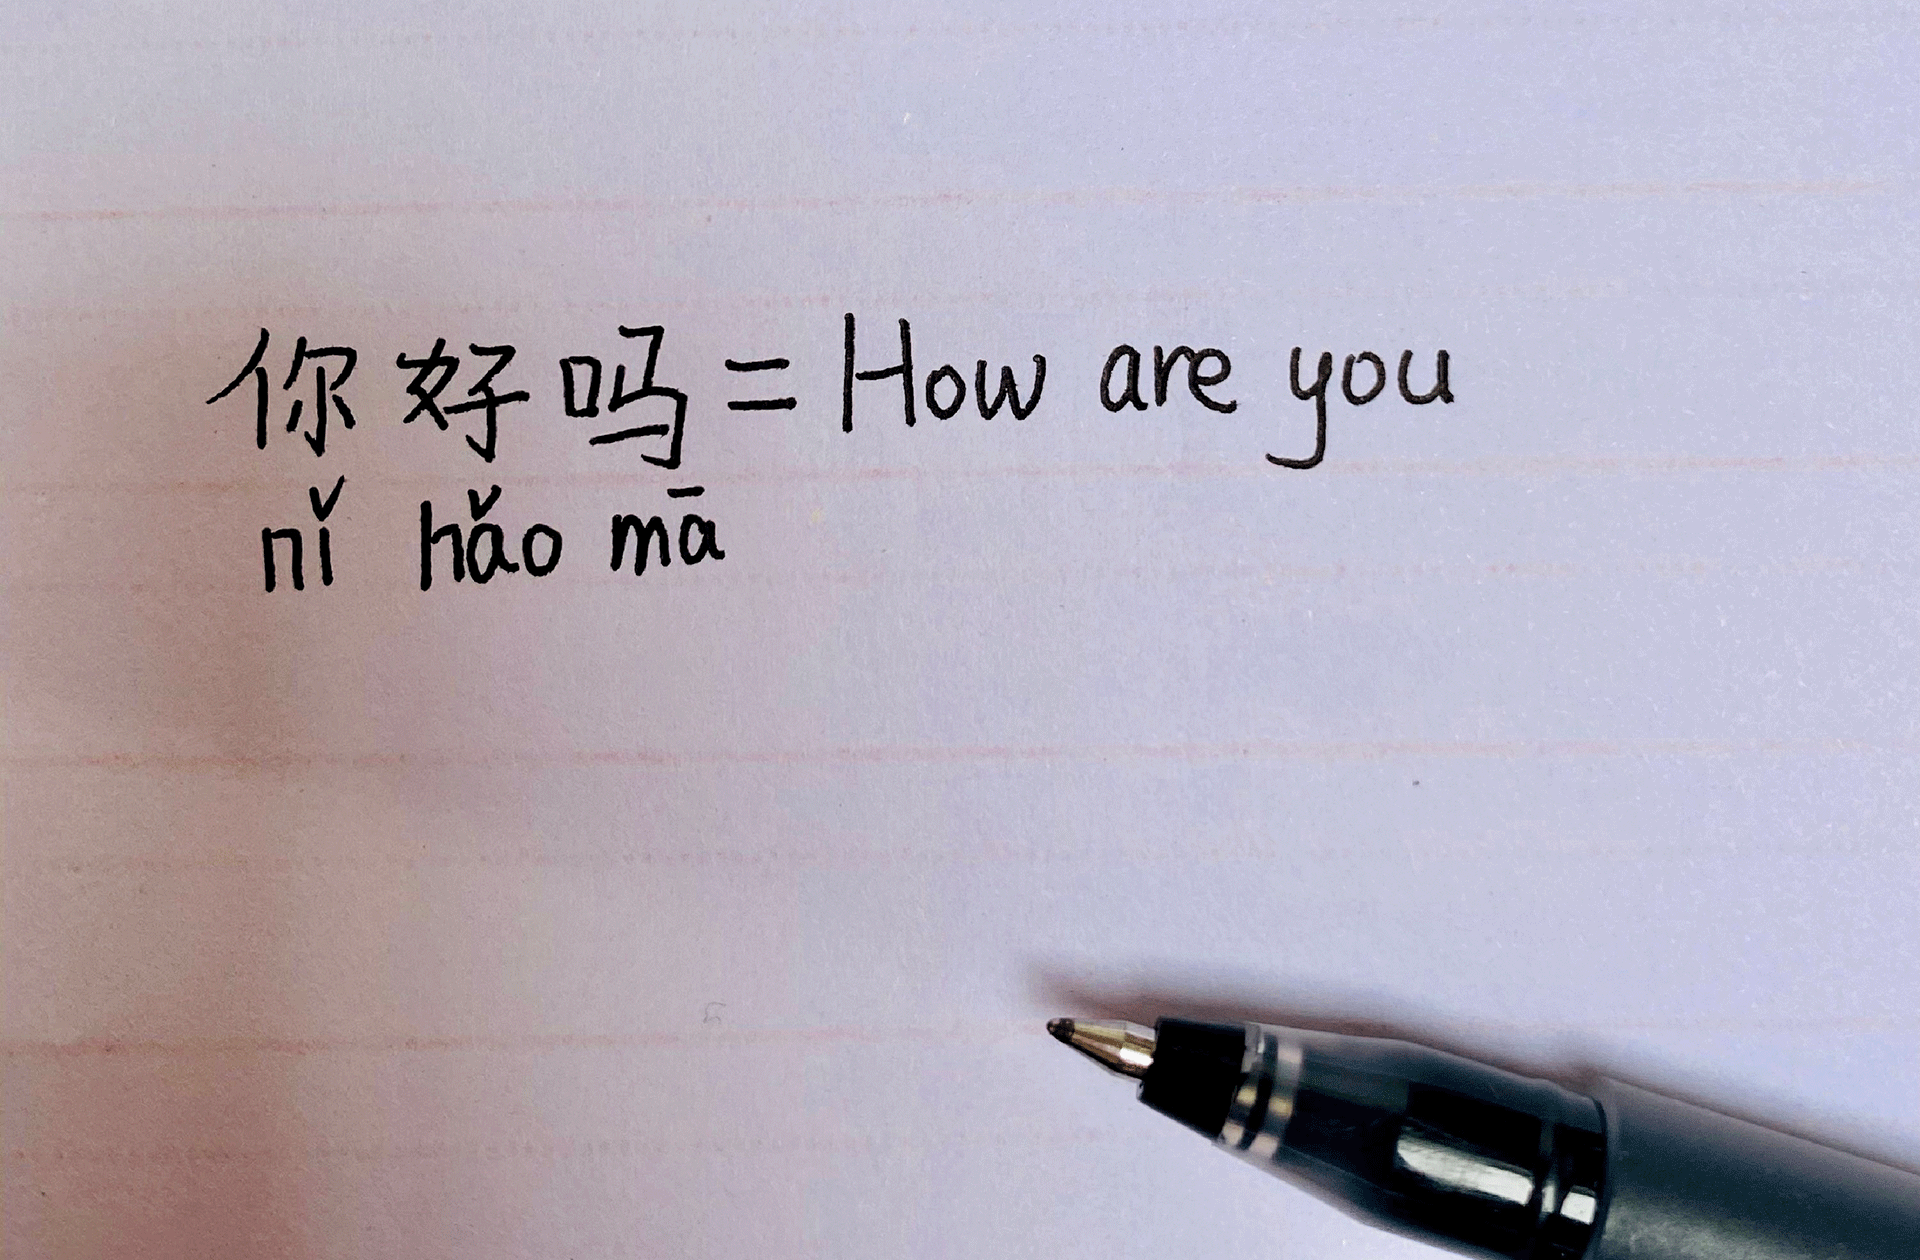 你好吗=How are you
nǐ hǎo mā